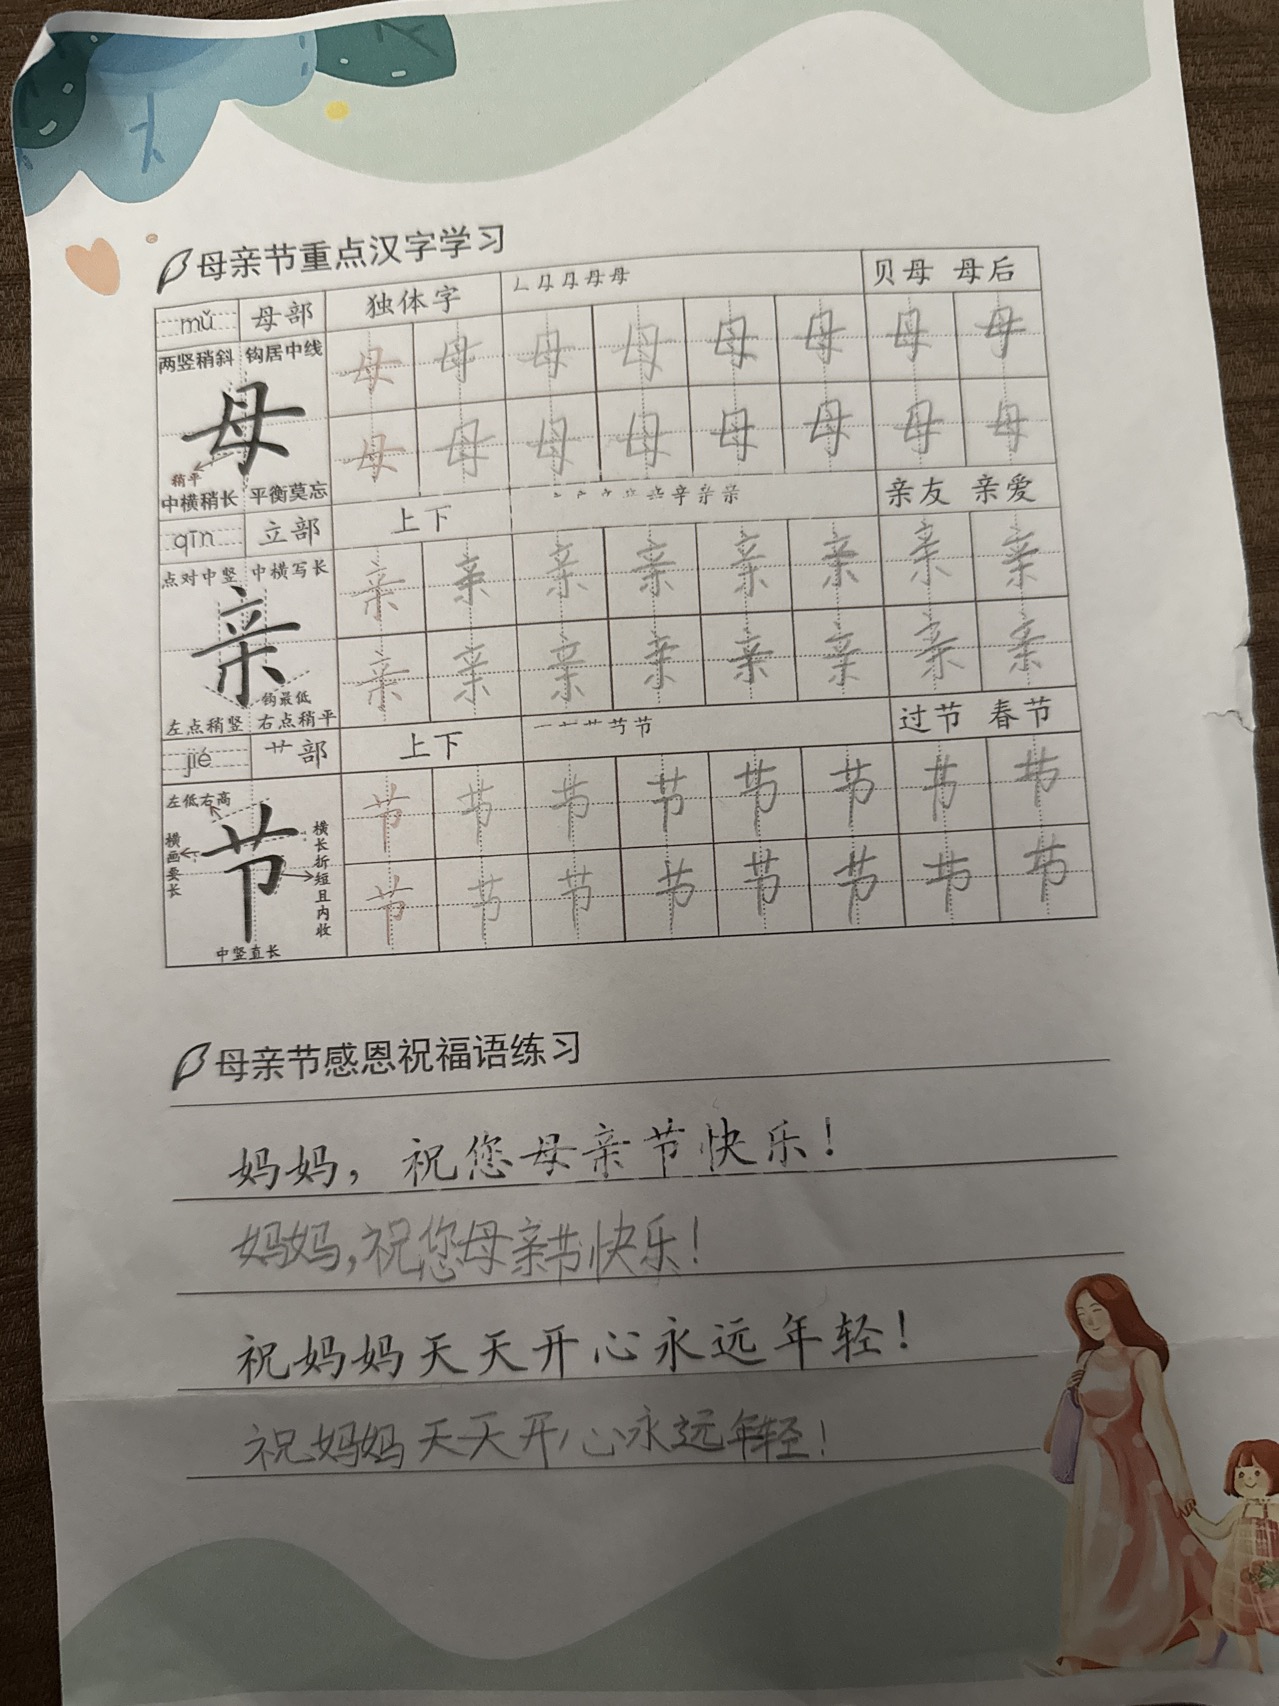 母亲节重点汉字学习
mǔ 母部 独体字 贝母 母后
两竖稍斜 钩居中线
母
稍平
中横稍长 平衡莫忘
母 母 母 母 母 母 母 母
母 母 母 母 母 母 母 母
qīn 立部 上下 亲友 亲爱
点对中竖 中横写长
亲
钩最低
左点稍竖 右点稍平
亲 亲 亲 亲 亲 亲 亲 亲
亲 亲 亲 亲 亲 亲 亲 亲
jié 艹部 上下 一 十 艹 节 节 过节 春节
左低右高
横画要长
节
横长折短且内收
中竖直长
节 节 节 节 节 节 节 节
节 节 节 节 节 节 节 节
母亲节感恩祝福语练习
妈妈，祝您母亲节快乐！
妈妈,祝您母亲节快乐!
祝妈妈天天开心永远年轻！
祝妈妈天天开心永远年轻!